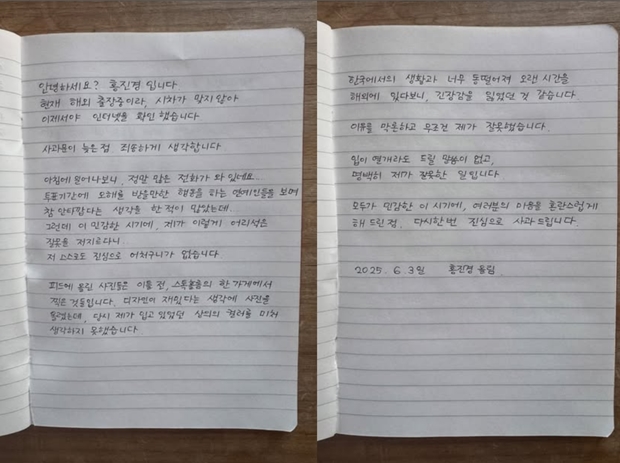 안녕하세요? 홍진경 입니다
현재 해외 출장중이라, 시차가 맞지 않아
이제서야 인터넷을 확인 했습니다
사과문이 늦은점 죄송하게 생각합니다
아침에 일어나보니, 정말 많은 전화가 와 있네요.
투표기간에 오해를 받을만한 행동을 하는 연예인들을 보며
참 안타깝다는 생각을 한 적이 많았는데.
그런데 이 민감한 시기에, 제가 이렇게 어리석은
잘못을 저지르다니
저 스스로도 진심으로 어처구니가 없습니다
피드에 올린 사진들은 이틀 전, 스톡홀롬의 한 가게에서
찍은것들입니다. 디자인이 재밌다는 생각에 사진을
올렸는데, 당시 제가 입고 있었던 상의의 컬러를 미처
생각하지 못했습니다.
한국에서의 생활과 너무 동떨어져 오랜 시간을
해외에 있다보니, 긴장감을 잃었던 것 같습니다
이유를 막론하고 무조건 제가 잘못했습니다.
입이 열개라도 드릴 말씀이 없고,
명백히 제가 잘못한 일입니다.
모두가 민감한 이 시기에, 여러분의 마음을 혼란스럽게
해 드린 점, 다시한번 진심으로 사과드립니다.
2025. 6. 3일 홍진경 올림